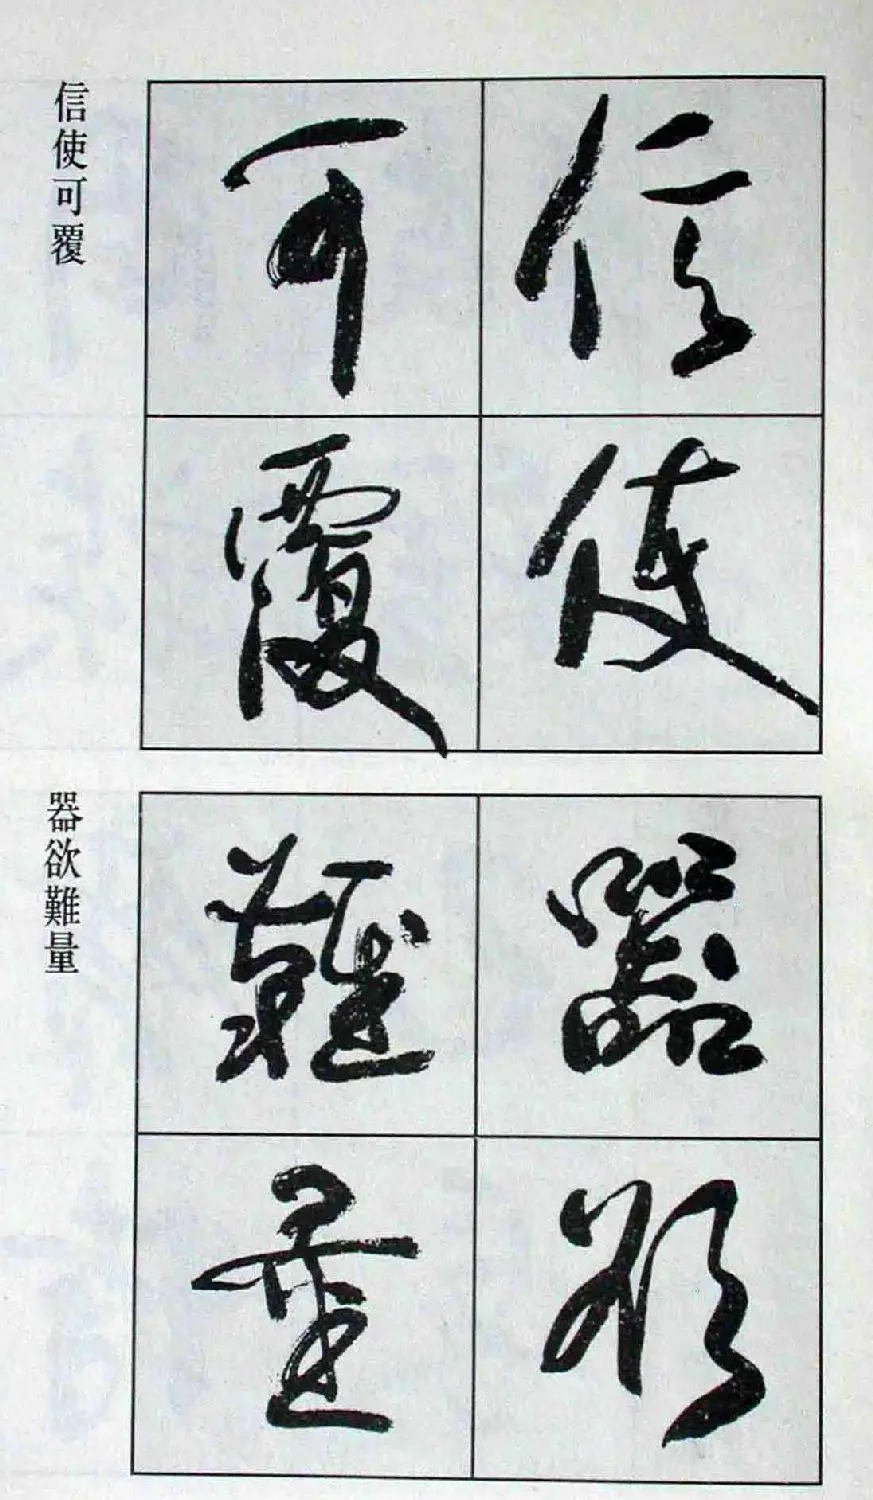 信使可覆
信使
可覆
器欲難量
器欲
難量